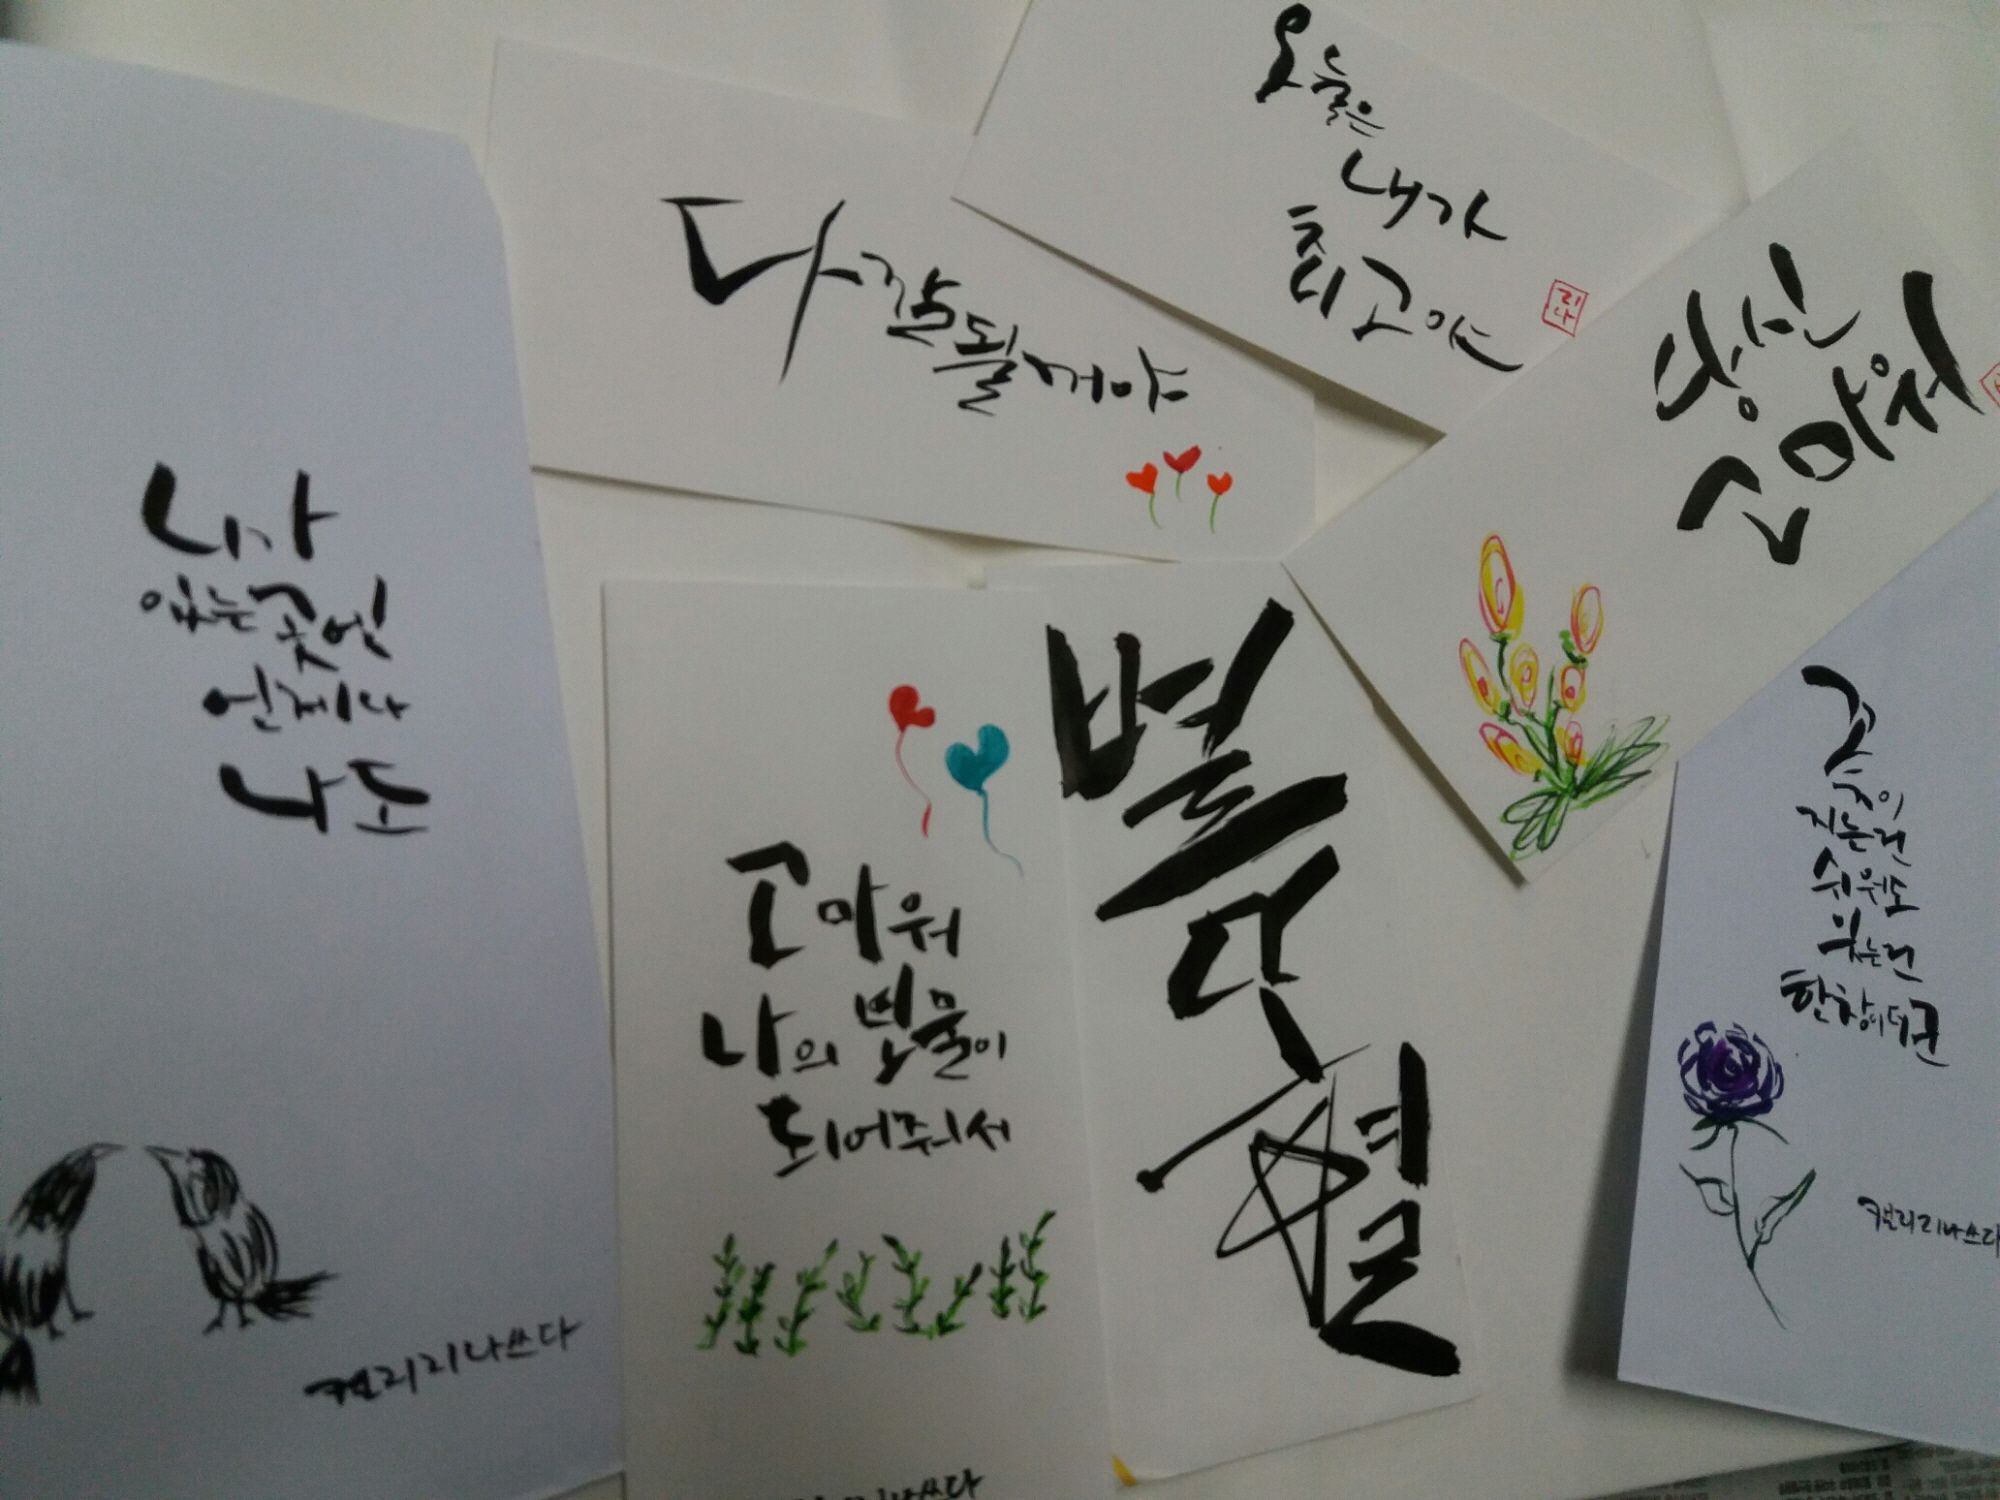 오늘은
내가
최고야
리나
다 잘 될꺼야
당신
고마워
니가
있는 곳엔
언제나
나도
캘리 리나쓰다
고마워
나의 보물이
되어줘서
리나쓰다
별
꽃이
지는건
쉬워도
잊는건
한참이더군
캘리 리나쓰다